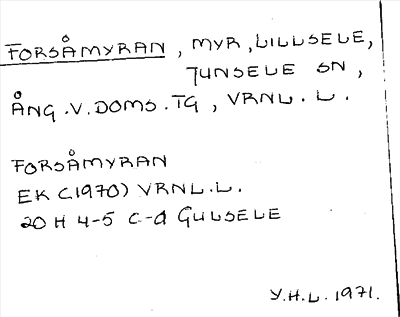 FORSÅMYRAN, MYR, LILLSELE,
JUNSELE SN,
ÅNG.V.DOMS.TG, VRNL.L.
FORSÅMYRAN
EK (1970) VRNL.L.
20 H 4-5 C-d GULSELE
Y.H.L. 1971.